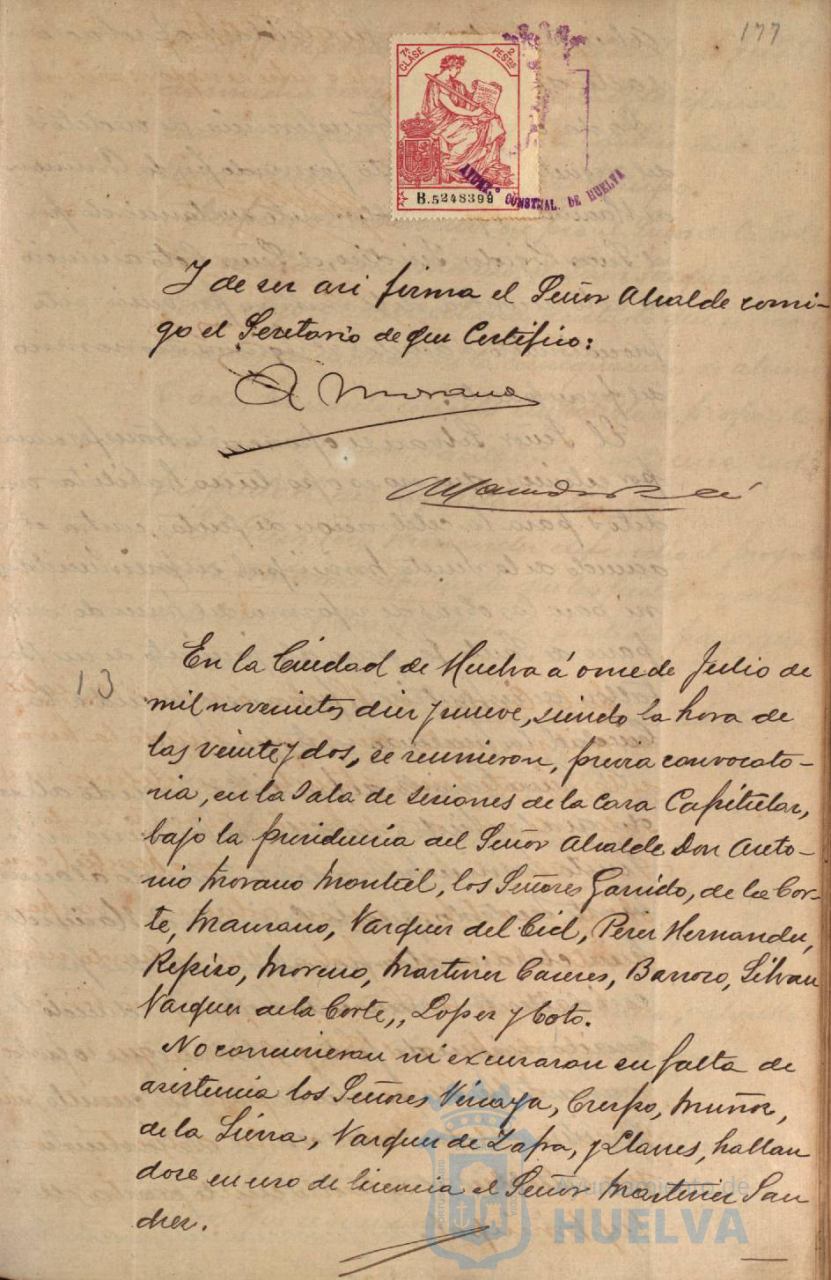 177
7ª CLASE
2 PESTAS
B.5248399
AYUNT.º CONSTNAL. DE HUELVA
Y de ser asi firma el Señor Alcalde conmi-
go el Secretario de que Certifico:
A Morano
13
En la Ciudad de Huelva á once de Julio de
mil novecientos diez y nueve, siendo la hora de
las veinte y dos, se reunieron, previa convocato-
ria, en la Sala de sesiones de la Casa Capitular,
bajo la presidencia del Señor Alcalde Don Anto-
nio Morano Montiel, los Señores Garrido, de la Cor-
te, Manzano, Vazquez del Cid, Perez Hernandez,
Repiso, Moreno, Martinez Caceres, Barroso, Silvan
Vazquez de la Corte,, Lopez y Coto.
No concurrieron ni excusaron su falta de
asistencia los Señores Vizcaya, Crespo, Muñoz,
de la Sierra, Vazquez de Zafra, y Llanes, hallan
dose en uso de licencia el Señor Martinez San
chez.
Ayuntamiento de
HUELVA